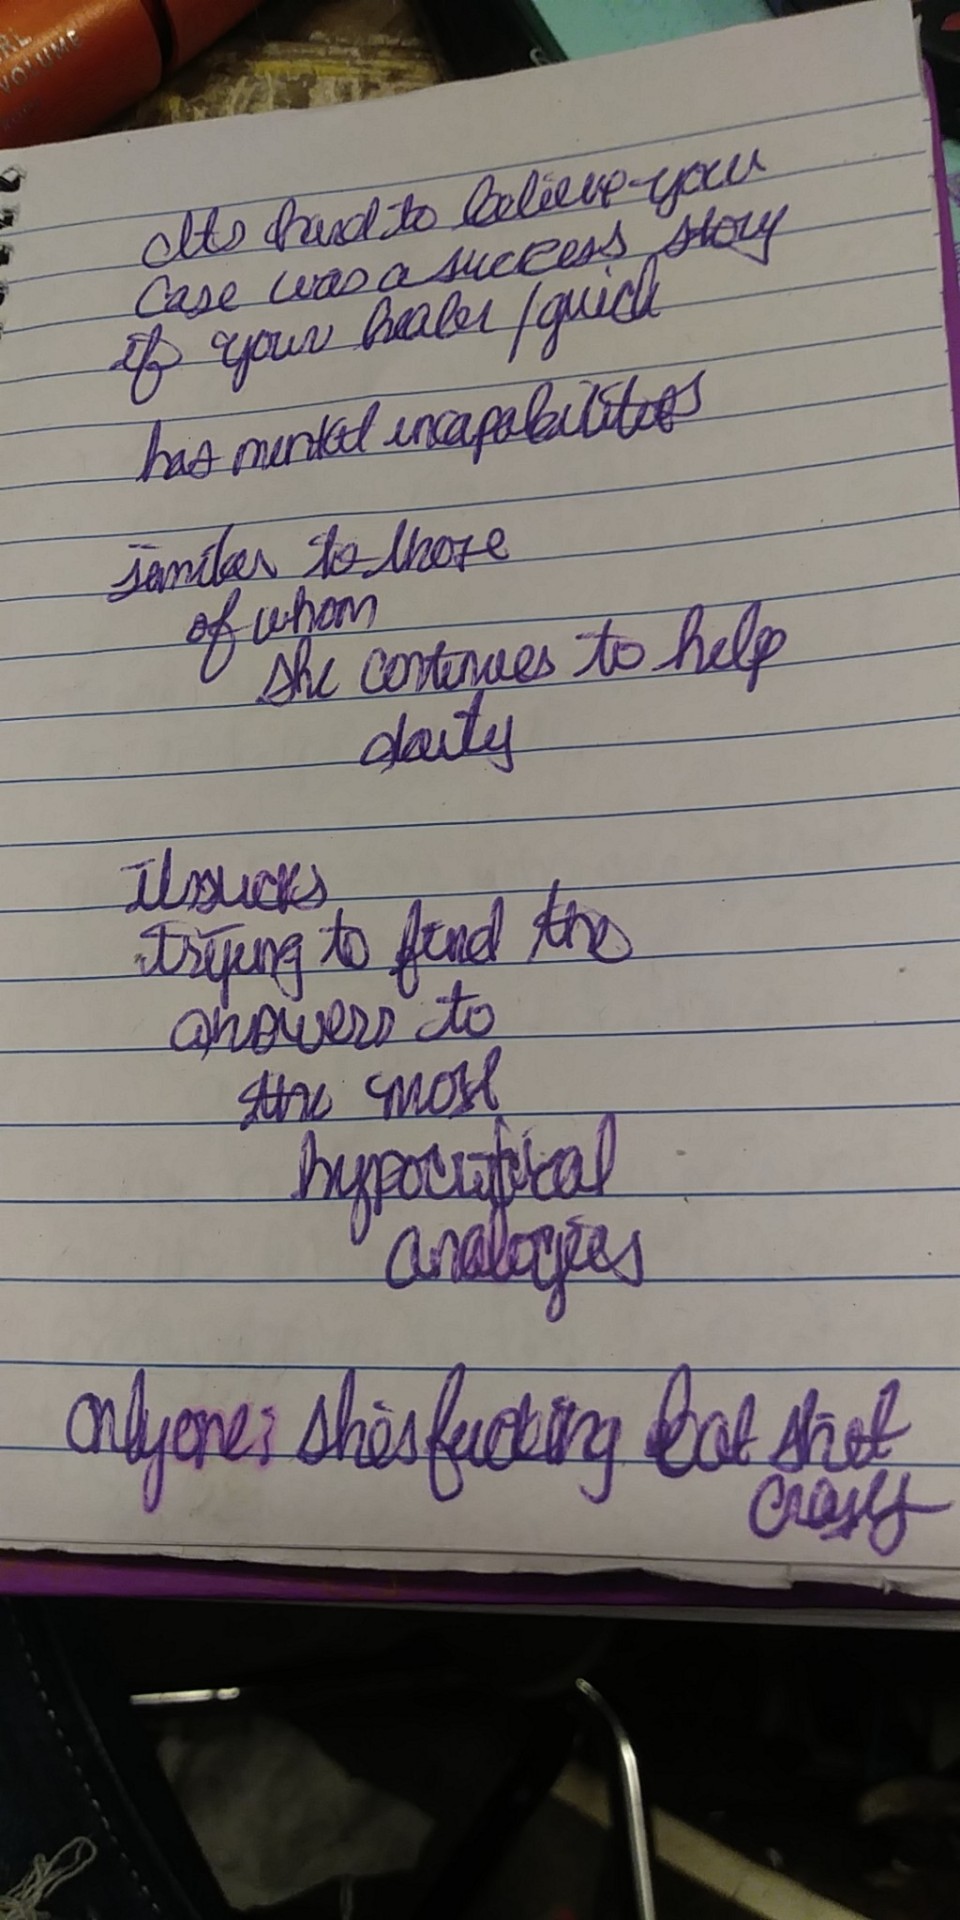 RL
VOLUME
Its hard to believe you
case was a success story
if your healer / quick
has mental incapabilities
similar to those
of whom
she continues to help
daily
it sucks
trying to find the
answers to
the most
hypocritical
analogies
only one: shes fucking bat shit
crazy